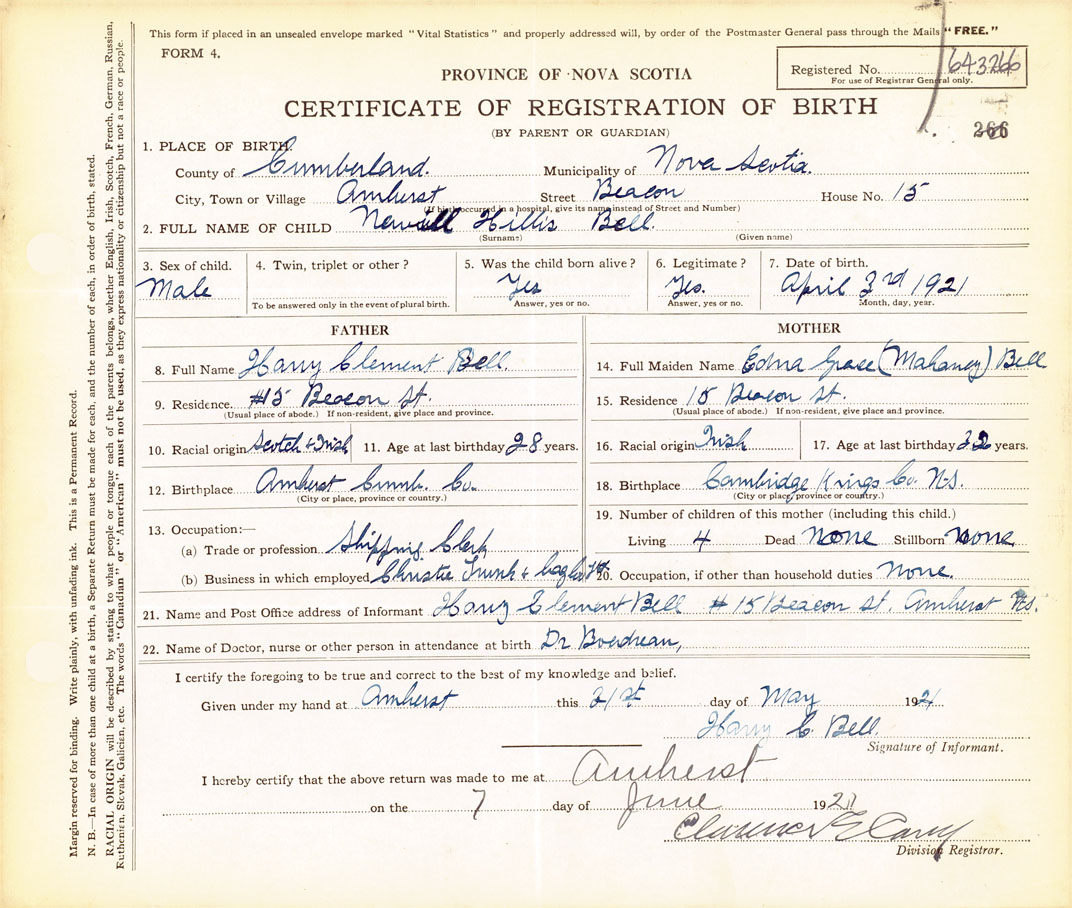 This form if placed in an unsealed envelope marked "Vital Statistics" and properly addressed will, by order of the Postmaster General pass through the Mails "FREE."
FORM 4.
Registered No. 643266
For use of Registrar General only.
PROVINCE OF NOVA SCOTIA
CERTIFICATE OF REGISTRATION OF BIRTH
(BY PARENT OR GUARDIAN)
266
1. PLACE OF BIRTH:
County of Cumberland. Municipality of Nova Scotia.
City, Town or Village Amherst Street Beacon House No. 15
(If birth occurred in a hospital, give its name instead of Street and Number)
2. FULL NAME OF CHILD Hillis Bell.
(Surname) (Given name)
3. Sex of child. 4. Twin, triplet or other? 5. Was the child born alive? 6. Legitimate? 7. Date of birth.
Male Yes Yes. April 3rd 1921
To be answered only in the event of plural birth. Answer, yes or no. Answer, yes or no. Month, day, year.
FATHER
8. Full Name Harry Clement Bell.
9. Residence. #15 Beacon St.
(Usual place of abode.) If non-resident, give place and province.
10. Racial origin Scotch & Irish 11. Age at last birthday 28 years.
12. Birthplace Amherst Cumb. Co.
(City or place, province or country.)
13. Occupation:—
(a) Trade or profession Shipping Clerk
(b) Business in which employed Christie Trunk &
MOTHER
14. Full Maiden Name Edna Grace (Mahaney) Bell
15. Residence 15 Beacon St.
(Usual place of abode.) If non-resident, give place and province.
16. Racial origin Irish 17. Age at last birthday 32 years.
18. Birthplace Cambridge Kings Co. N.S.
(City or place, province or country.)
19. Number of children of this mother (including this child.)
Living 4 Dead None Stillborn None
20. Occupation, if other than household duties None.
21. Name and Post Office address of Informant Harry Clement Bell #15 Beacon St. Amherst N.S.
22. Name of Doctor, nurse or other person in attendance at birth Dr
I certify the foregoing to be true and correct to the best of my knowledge and belief.
Given under my hand at Amherst this 31st day of May 1921
Harry C. Bell.
Signature of Informant.
I hereby certify that the above return was made to me at Amherst
on the 7 day of June 1921
Clarence
Division Registrar.
Margin reserved for binding. Write plainly, with unfading ink. This is a Permanent Record.
N. B.—In case of more than one child at a birth, a Separate Return must be made for each, and the number of each, in order of birth, stated.
RACIAL ORIGIN will be described by stating to what people or tongue each of the parents belongs, whether English, Irish, Scotch, French, German, Russian,
Ruthenian, Slovak, Galician, etc. The words "Canadian" or "American" must not be used, as they express nationality or citizenship but not a race or people.